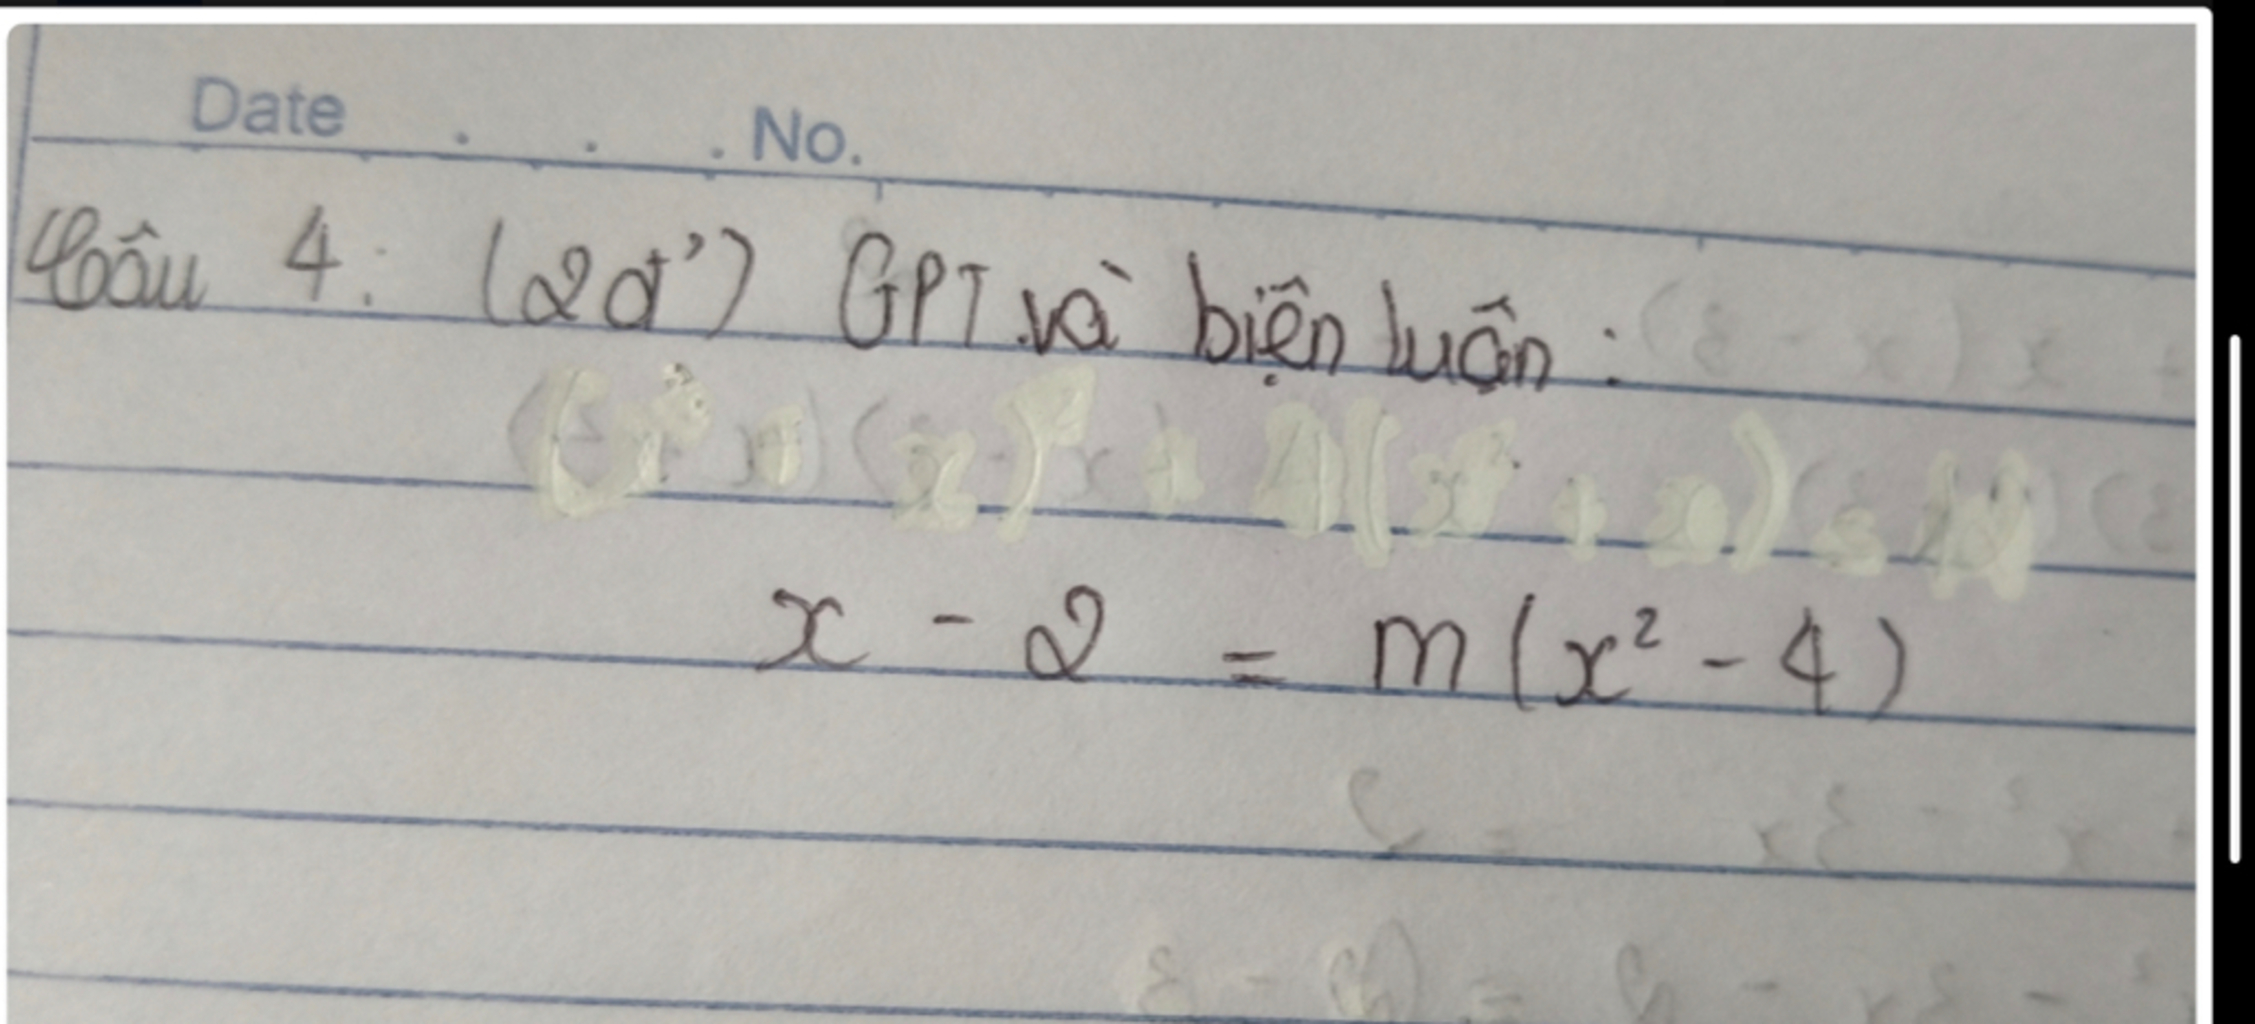 Date . . . No.
Câu 4: (2đ') GPT và biện luận:
x - 2 = m(x² - 4)